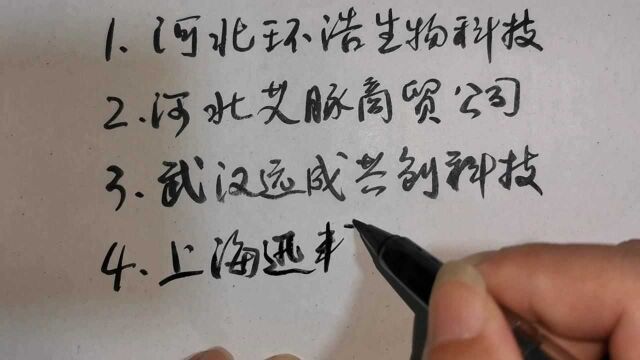 1. 河北环浩生物科技
2. 河北艾脉商贸公司
3. 武汉远成共创科技
4. 上海迅